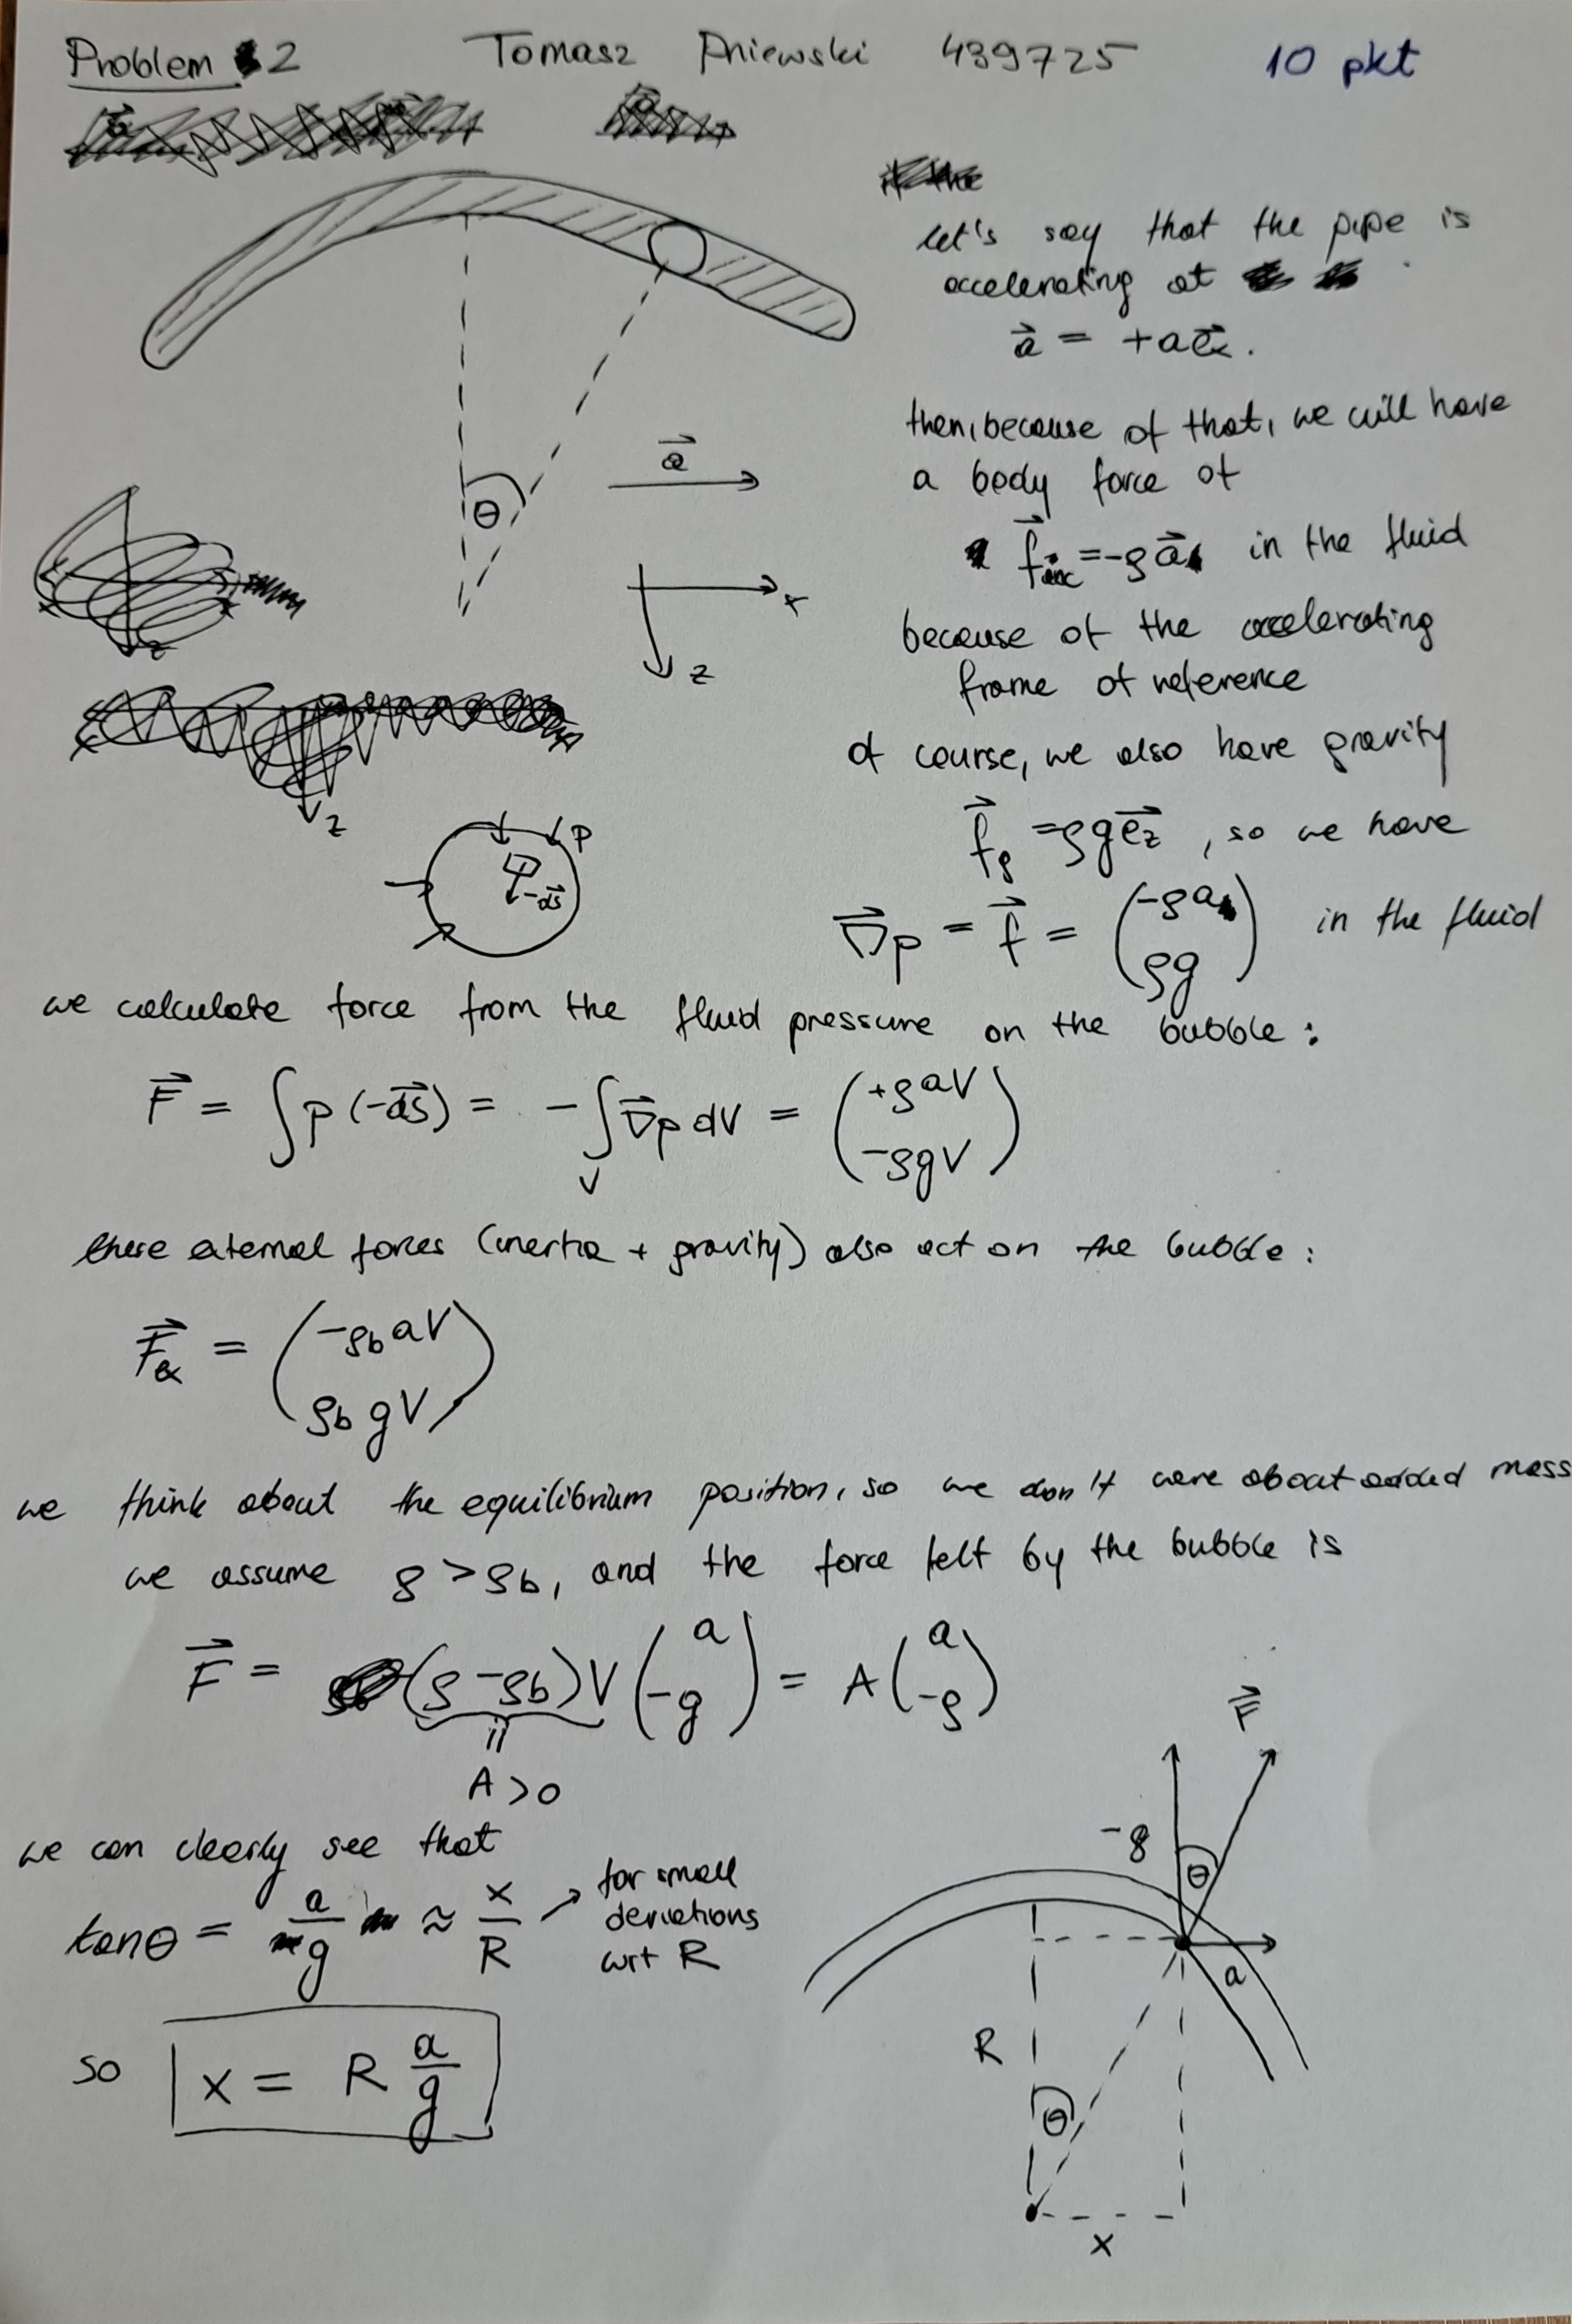 Problem 2 Tomasz Pniewski 439725 10 pkt
let's say that the pipe is
accelerating at
a⃗ = +ae⃗ₓ.
then, because of that, we will have
a body force of
θ
a⃗
f⃗ = -ρa⃗ in the fluid
x
because of the accelerating
z
frame of reference
of course, we also have gravity
z
f⃗g = ρge⃗z, so we have
p
-ds⃗
∇⃗p = f⃗ = (-ρa ρg) in the fluid
we calculate force from the fluid pressure on the bubble:
F⃗ = ∫p(-ds⃗) = -∫V ∇⃗p dV = (+ρaV -ρgV)
these external forces (inertia + gravity) also act on the bubble:
F⃗ex = (-ρb aV ρb gV)
we think about the equilibrium position, so we don't care about added mass
we assume ρ > ρb, and the force felt by the bubble is
F⃗ = (ρ-ρb)V (a -g) = A (a -g)
F⃗
A > 0
we can clearly see that
-g
θ
tanθ = a/g ≈ x/R → for small
deviations
wrt R
a
so x = R a/g
R
θ
x